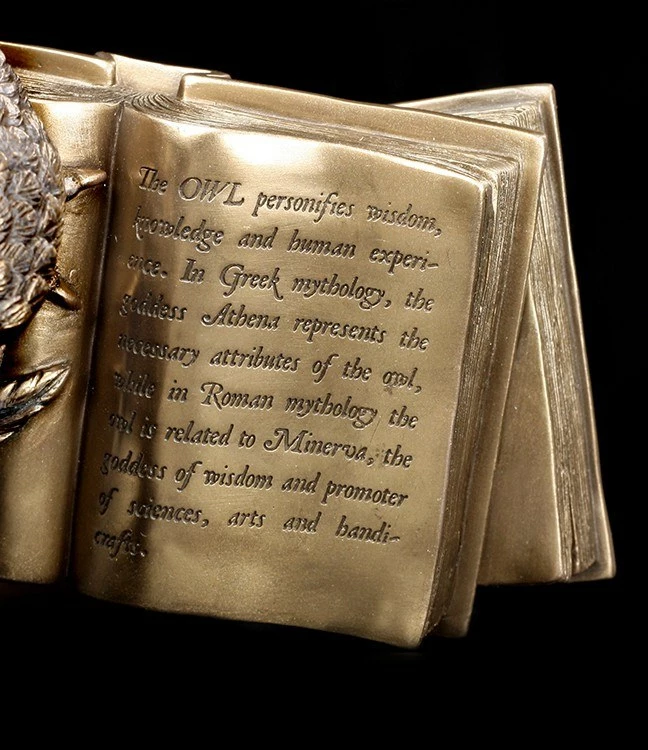 The OWL personifies wisdom,
knowledge and human experi-
ence. In Greek mythology, the
goddess Athena represents the
necessary attributes of the owl,
while in Roman mythology the
owl is related to Minerva, the
goddess of wisdom and promoter
of sciences, arts and handi-
crafts.